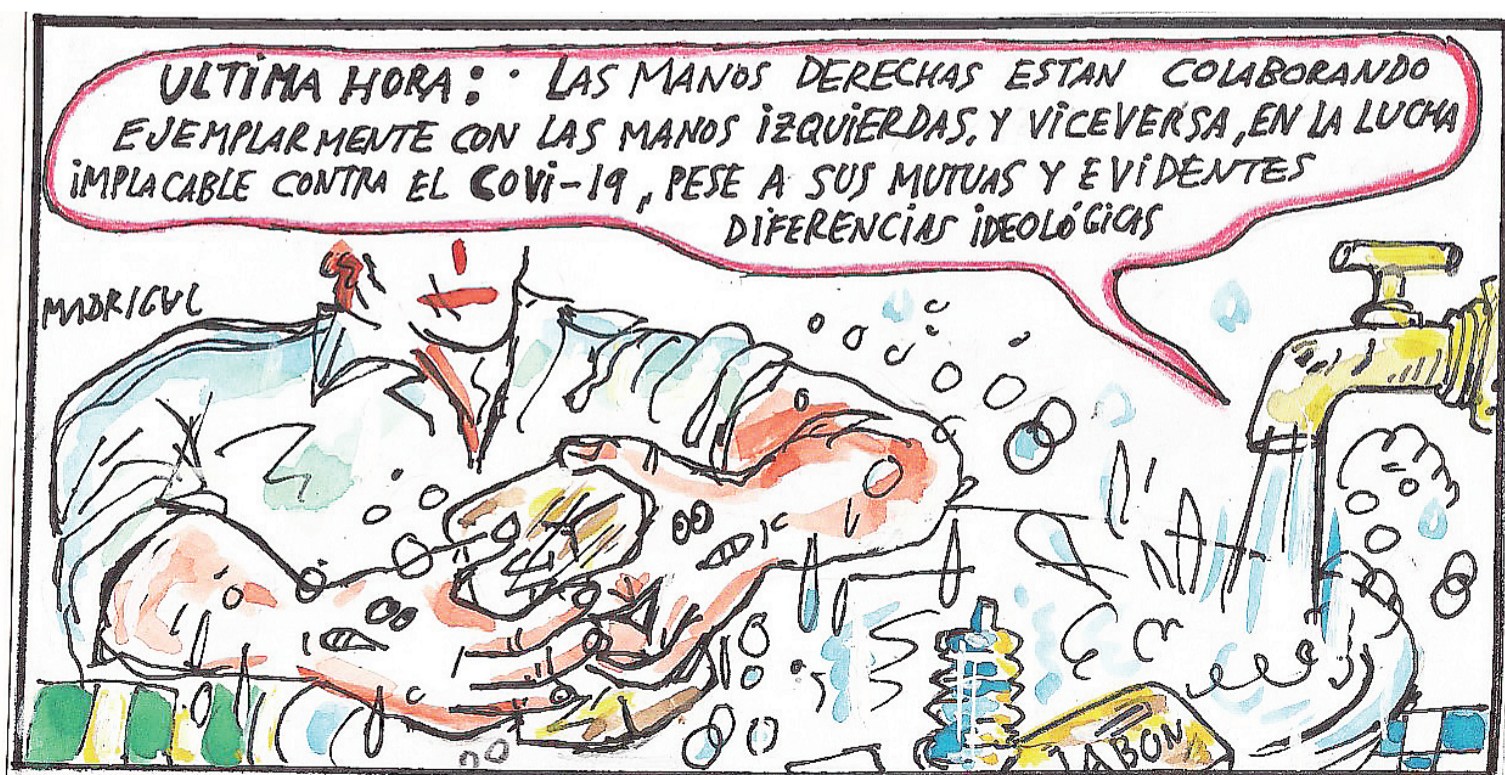 ULTIMA HORA: LAS MANOS DERECHAS ESTAN COLABORANDO
EJEMPLARMENTE CON LAS MANOS IZQUIERDAS, Y VICEVERSA, EN LA LUCHA
IMPLACABLE CONTRA EL COVI-19, PESE A SUS MUTUAS Y EVIDENTES
DIFERENCIAS IDEOLÓGICAS
MADRIGUL
JABON